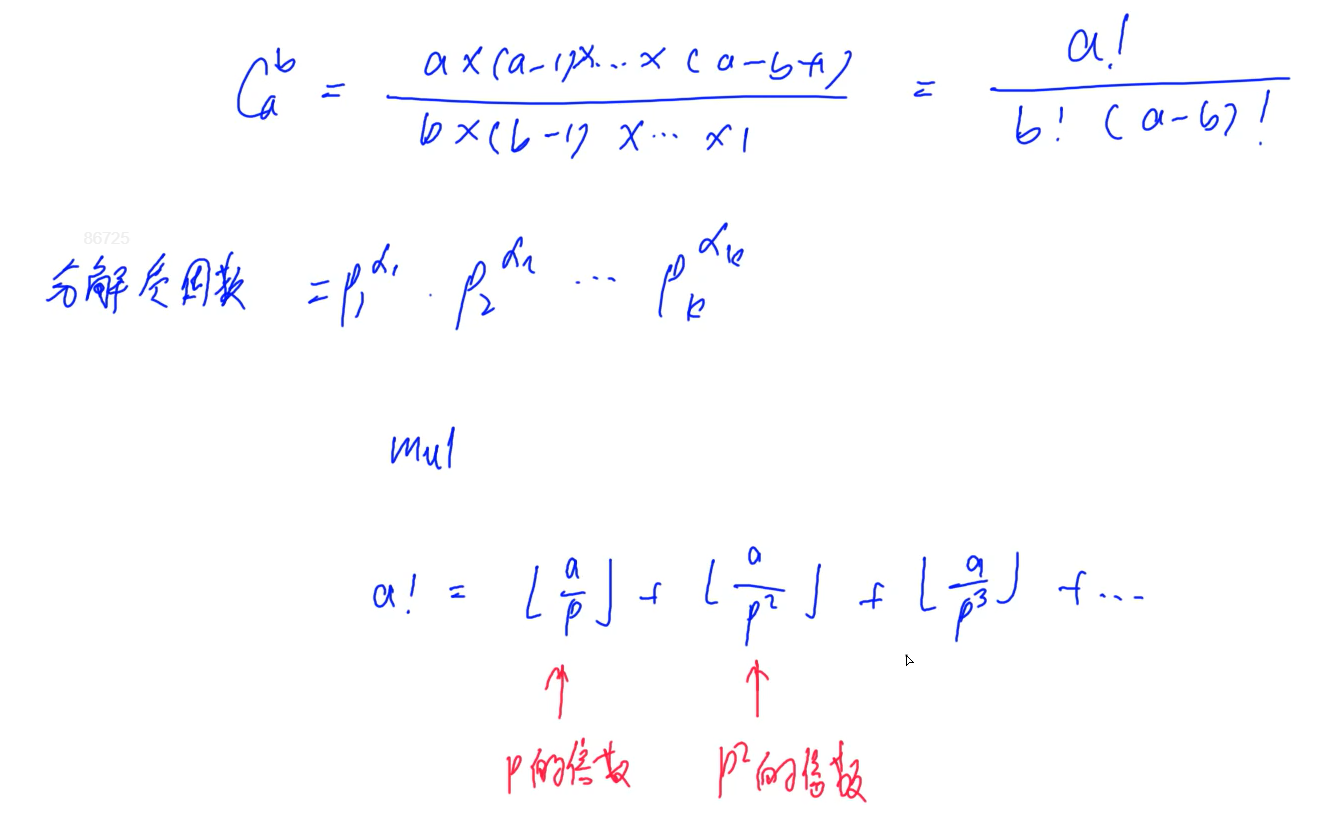 C_a^b = \frac{a×(a-1)×...×(a-b+1)}{b×(b-1)×...×1} = \frac{a!}{b!(a-b)!}
86725
分解质因数 = p_1^{α_1} · p_2^{α_2} ... p_k^{α_k}
mul
a! = ⌊\frac{a}{p}⌋ + ⌊\frac{a}{p^2}⌋ + ⌊\frac{a}{p^3}⌋ + ...
p的倍数 p^2的倍数